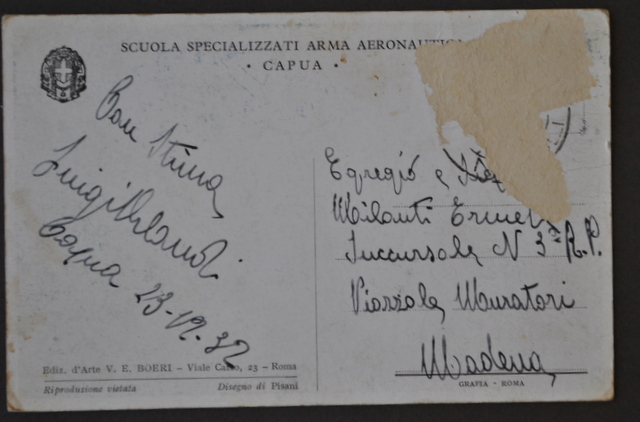 SCUOLA SPECIALIZZATI ARMA AERONAUTIC
• CAPUA •
Con stima
Luigi Orlandi
Capua 23-12-32
Egregio e
Milanti Ermet
Succursale N 3ª R.P.
Piazzale Muratori
Modena
Ediz. d'Arte V. E. BOERI – Viale Carso, 23 – Roma
Riproduzione vietata
Disegno di Pisani
GRAFIA - ROMA